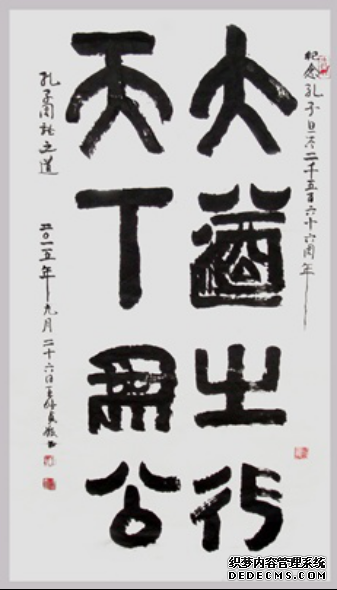 纪念孔子旦辰二千五百六十六周年
大道之行
天下為公
孔子 之道
二〇一五年九月二十六日
织梦内容管理系统
DEDECMS.COM